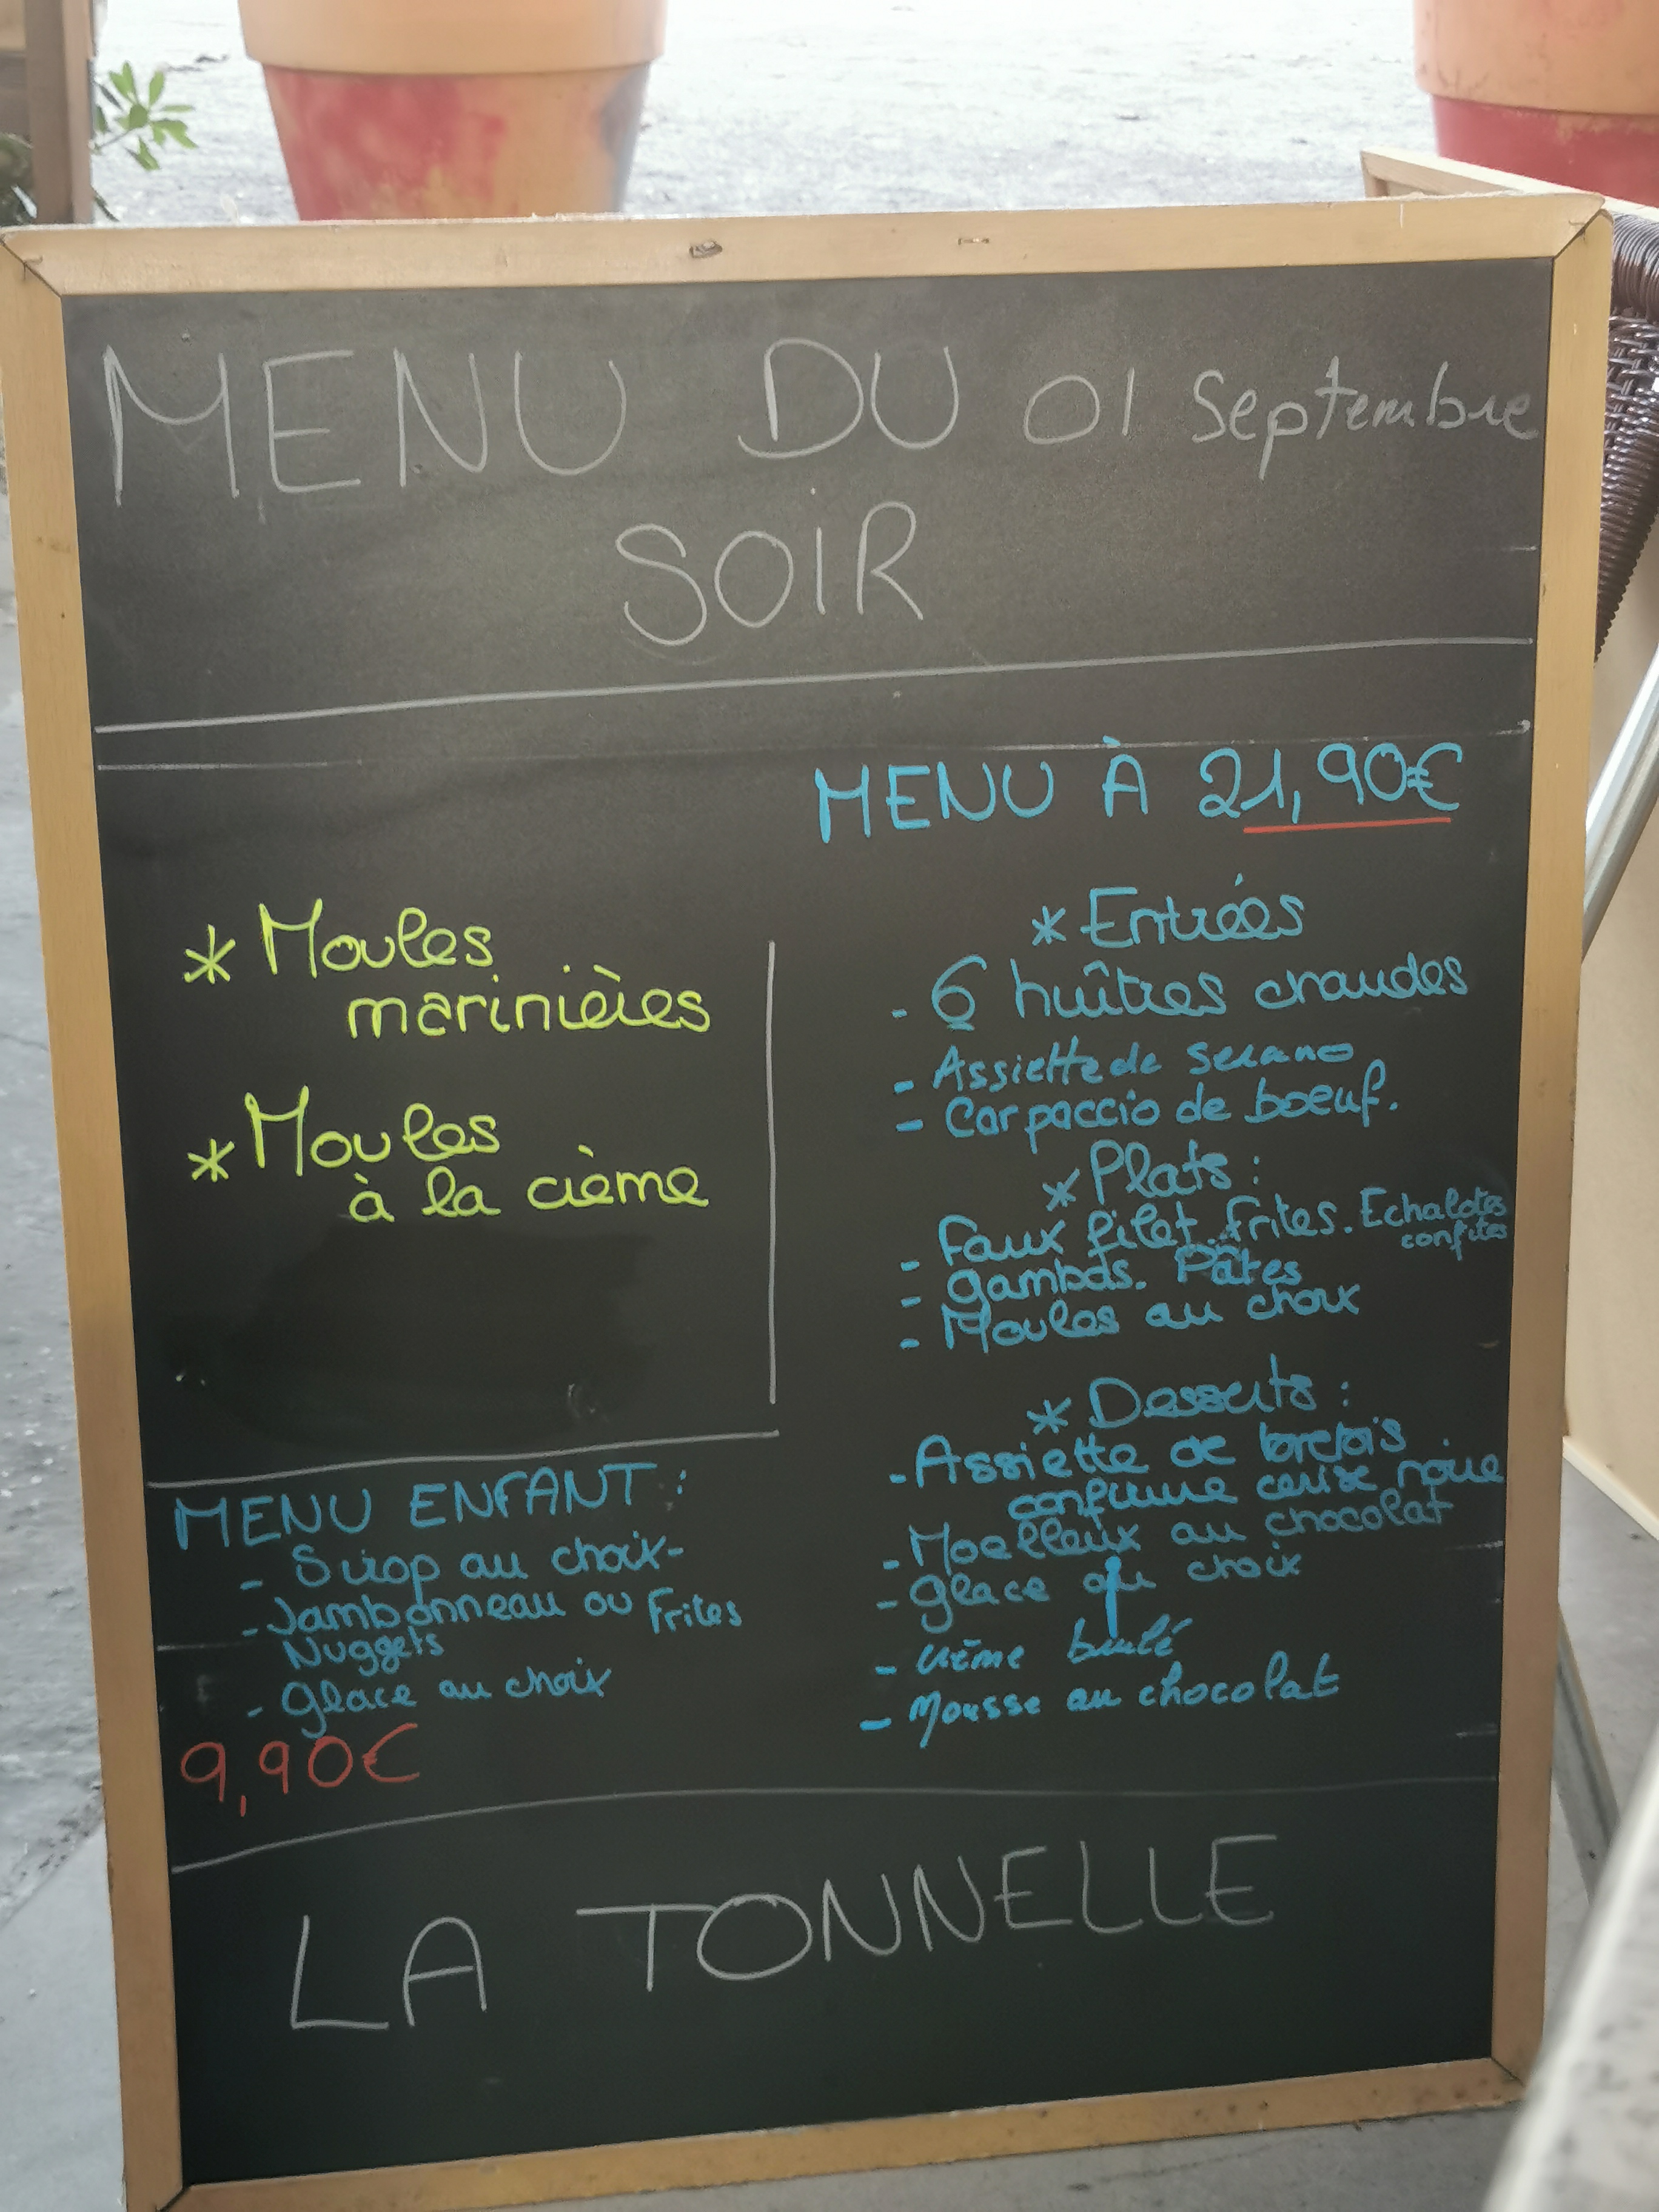 MENU DU 01 Septembre
SOIR
* Moules
marinières
* Moules
à la crème
MENU ENFANT :
- Sirop au choix-
- Jambonneau ou Frites
Nuggets
- glace au choix
9,90€
MENU À 21,90€
* Entrées
- 6 huîtres chaudes
- Assiette de serano
- Carpaccio de boeuf.
* Plats :
- Faux filet. frites. Echalotes
confites
- gambas. Pâtes
- Moules au choix
* Desserts :
- Assiette de brebis
confiture cerise noire
- Moelleux au chocolat
- glace au choix
- crème brulé
- Mousse au chocolat
LA TONNELLE